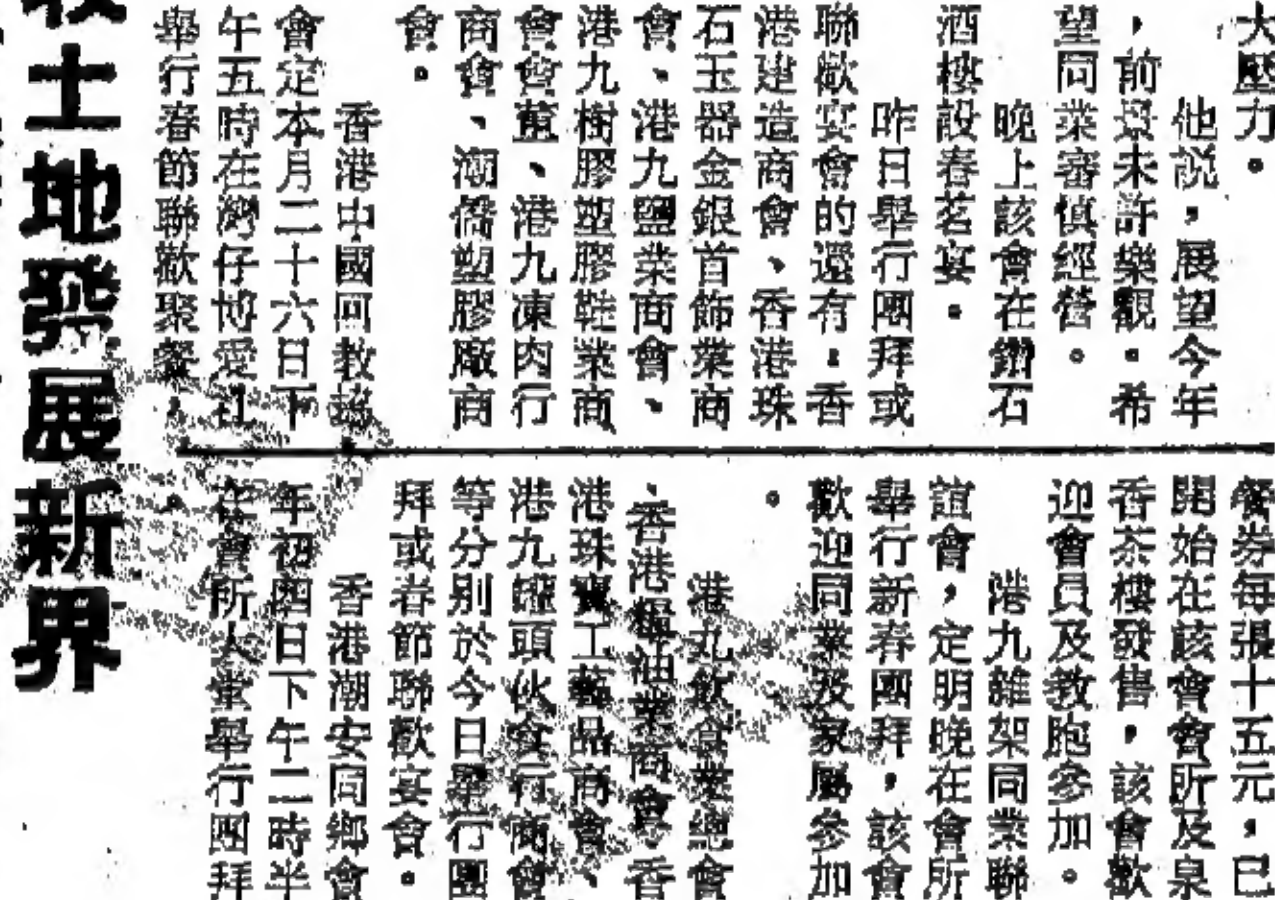 大壓力。
他説，展望今年
，前景未許樂觀。希
望同業審慎經營。
晚上該會在鑽石
酒樓設春茗宴。
昨日舉行團拜或
聯歡宴會的還有：香
港建造商會、香港珠
石玉器金銀首飾業商
會、港九鹽業商會、
港九樹膠塑膠鞋業商
會會董、港九凍肉行
商會、潮僑塑膠廠商
會。
香港中國回教協
會定本月二十六日下
午五時在灣仔博愛社
舉行春節聯歡聚餐，
餐券每張十五元，已
開始在該會會所及泉
香茶樓發售，該會歡
迎會員及教胞參加。
港九雜架同業聯
誼會，定明晚在會所
舉行新春團拜，該會
歡迎同業及家屬參加
。
港九飲食業總會
、香港糧油業商會、香
港珠寶工藝品商會、
港九罐頭伙食行商會
等分別於今日舉行團
拜或春節聯歡宴會。
香港潮安同鄉會
年初四日下午二時半
在會所大堂舉行團拜
。
土地發展新界